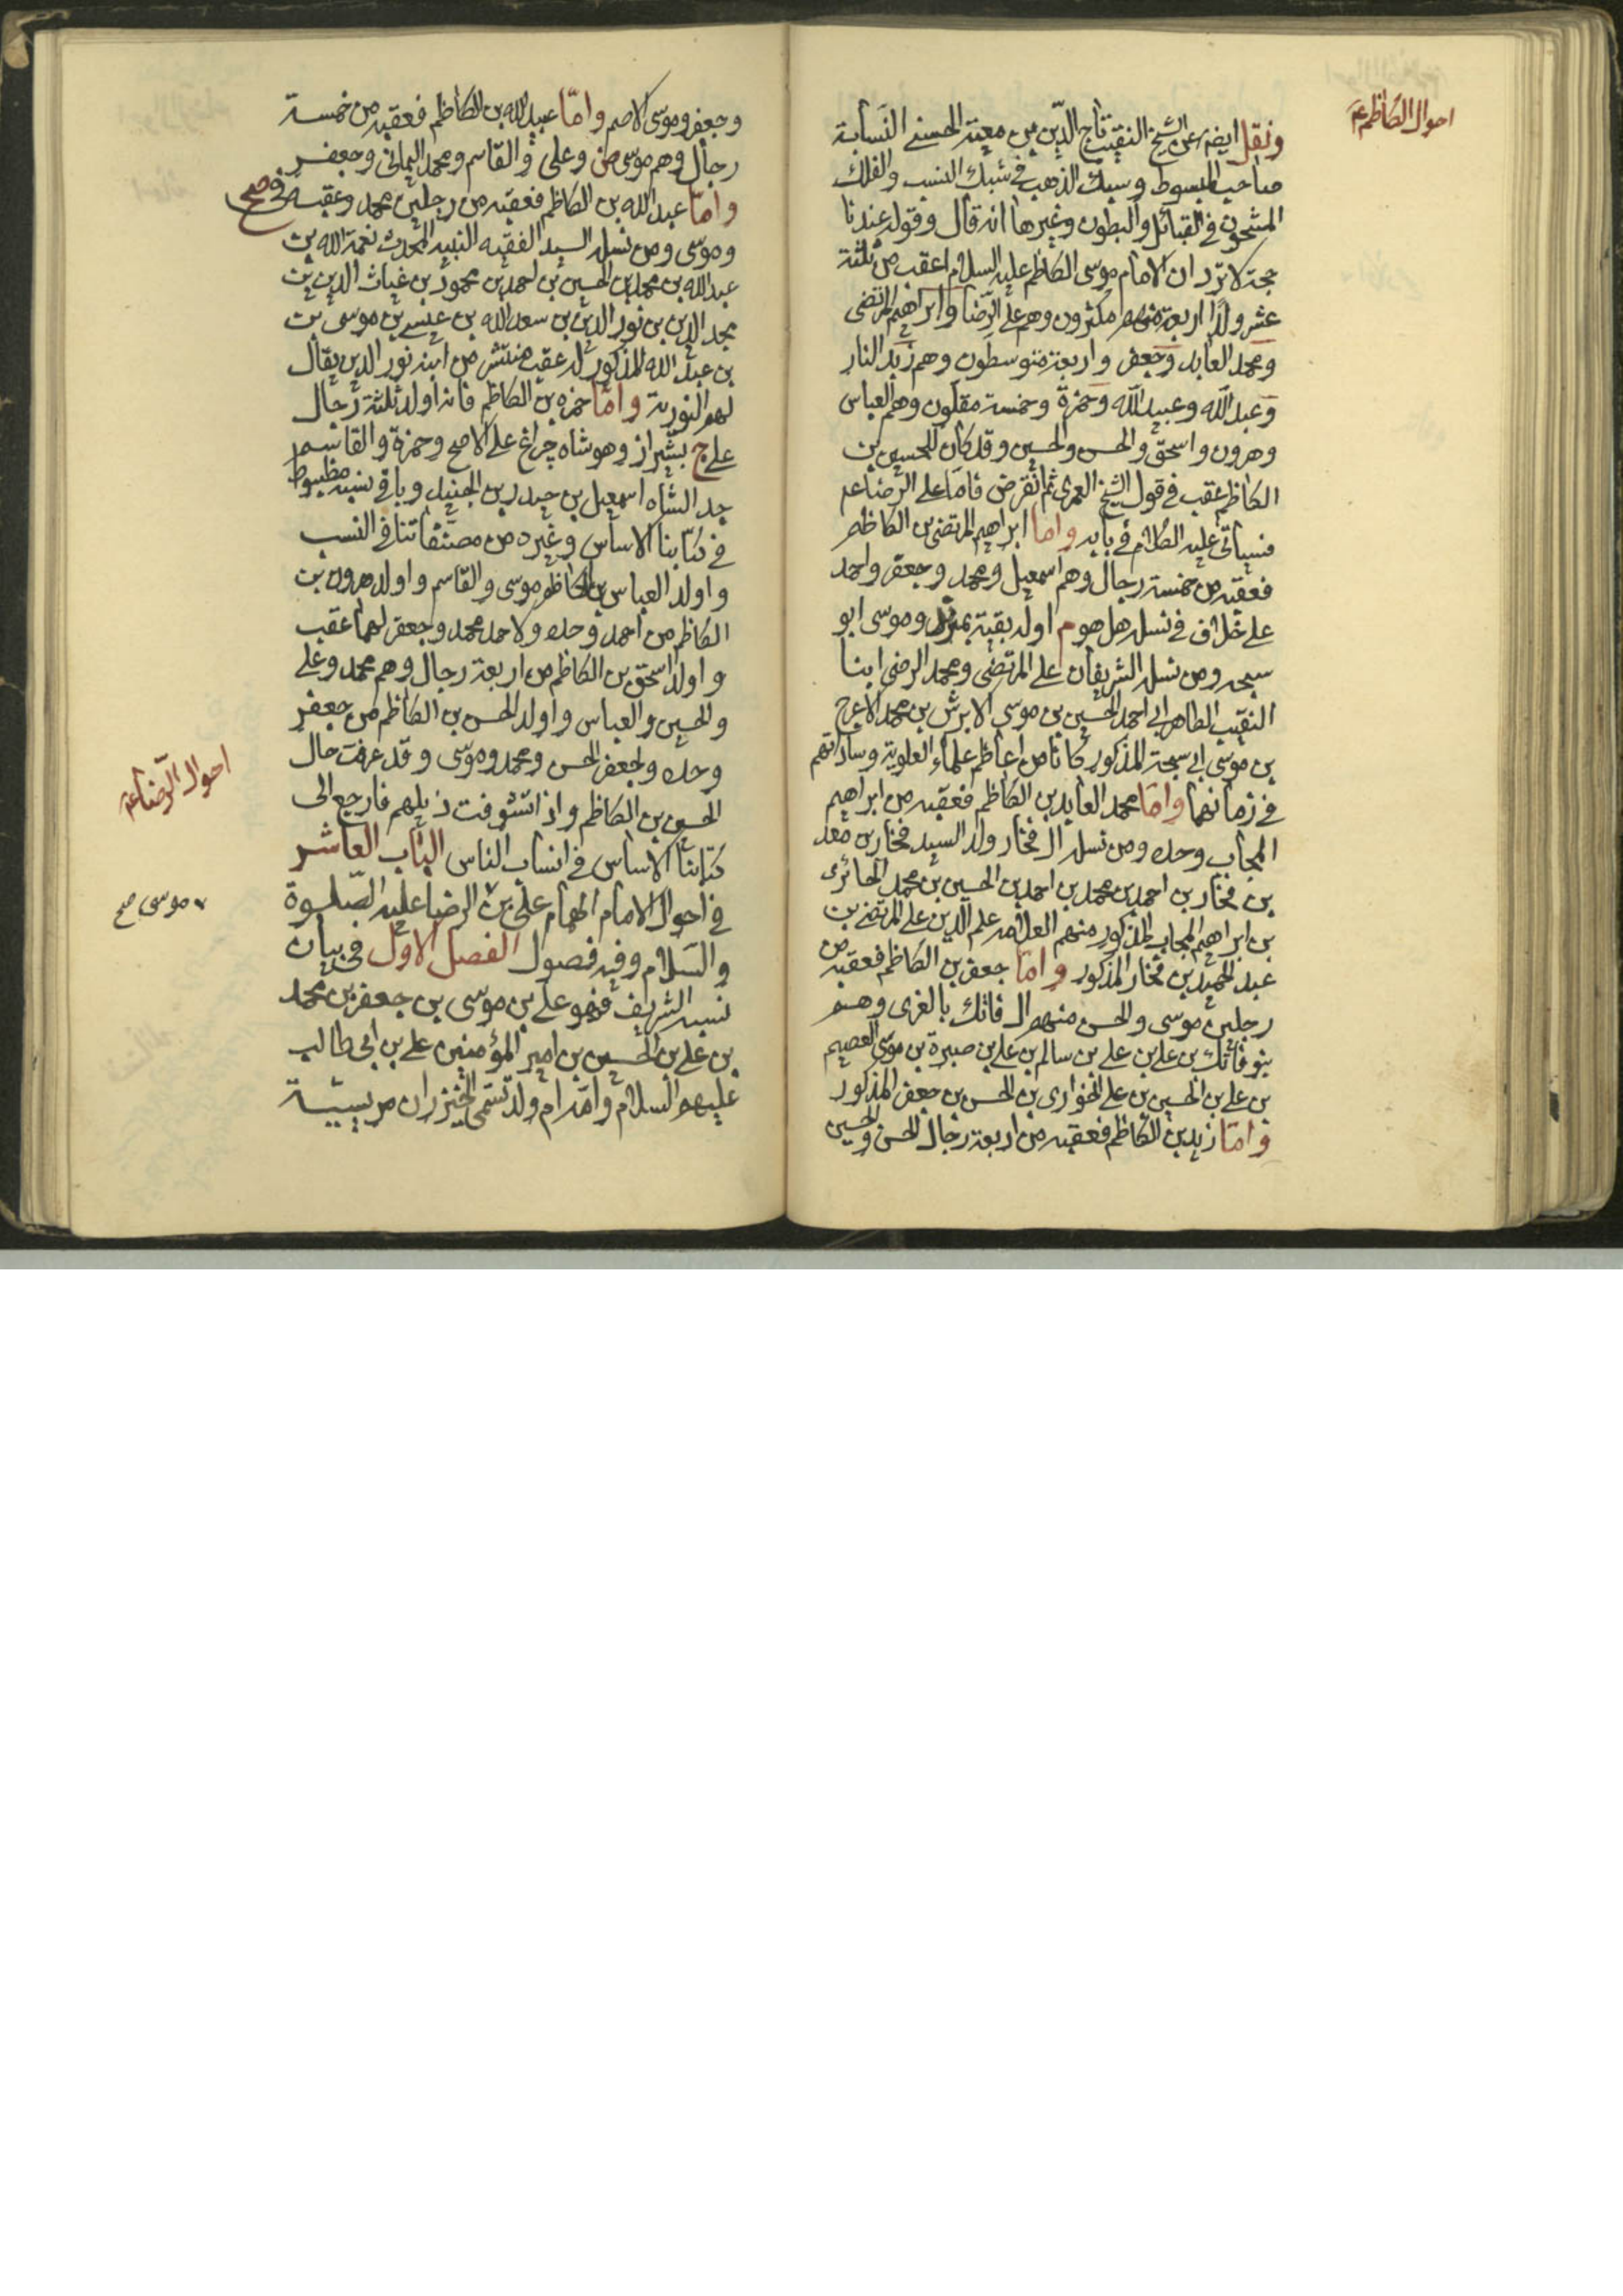 احوال الكاظم ع
ونقل ايضا عن الشيخ النقيب تاج الدين بن معية الحسنى النسابة
صاحب المبسوط وسبك الذهب في شبك النسب والفلك
المشحون في القبائل والبطون وغيرها انه قال وقوله عندنا
حجة لا ترد ان الامام موسى الكاظم عليه السلام اعقب من ثلثة
عشر ولدا اربعة منهم مكثرون وهم على الرضا وابراهيم المرتضى
ومحمد العابد وجعفر واربعة متوسطون وهم زيد النار
وعبد الله وعبيد الله وحمزة وخمسة مقلون وهم العباس
وهرون واسحق والحسن والحسين وقد كان للحسين بن
الكاظم عقب في قول الشيخ العمرى ثم انقرض فاما على الرضا ع
فسياتى عليه الكلام في بابه واما ابراهيم المرتضى بن الكاظم
فعقبه من خمسة رجال وهم اسمعيل ومحمد وجعفر واحمد
على خلاف في نسله هل هو م اوله بقية وموسى ابو
سبحه ومن نسله الشريفان على المرتضى ومحمد الرضى ابنا
النقيب الطاهر ابى احمد الحسين بن موسى الابرش بن محمد الاعرج
بن موسى ابى سبحة المذكور كانا من اعاظم علماء العلوية وساداتهم
في زمانهما واما محمد العابد بن الكاظم فعقبه من ابراهيم
المجاب وحده ومن نسله ال فخار ولد السيد فخار بن معد
بن فخار بن احمد بن محمد بن احمد بن الحسين بن محمد الحائرى
بن ابراهيم المجاب المذكور منهم العلامه علم الدين على المرتضى بن
عبد الحميد بن فخار المذكور واما جعفر بن الكاظم فعقبه من
رجلين موسى والحسن منهم ال فاتك بالغرى وهم
بنو فاتك بن على بن على بن سالم بن على بن صبرة بن موسى العصيم
بن على بن الحسين بن على الخوارى بن الحسن بن جعفر المذكور
واما زيد بن الكاظم فعقبه من اربعة رجال الحسن والحسين
وجعفر وموسى الاصم واما عبيد الله بن الكاظم فعقبه من خمسة
رجال وهم موسى وعلى والقاسم ومحمد اليمانى وجعفر
واما عبد الله بن الكاظم فعقبه من رجلين محمد وعقبه في صح
وموسى ومن نسله السيد الفقيه النبيه المحدث نعمة الله بن
عبد الله بن محمد بن الحسين بن احمد بن محمود بن غياث الدين بن
مجد الدين بن نور الدين بن سعد الله بن عيسى بن موسى بن
بن عبد الله المذكور له عقب منتشر من ابنه نور الدين يقال
لهم النورية واما حمزه بن الكاظم فانه اولد ثلثة رجال
على ج بشيراز وهو شاه چراغ على الاصح وحمزة والقاسم
جد الشاه اسمعيل بن حيدر بن الجنيد وباقى نسبه مظبوط
في كتابنا الاساس وغيره من مصنفاتنا في النسب
واولد العباس بن الكاظم موسى والقاسم واولد هرون بن
الكاظم من احمد وحده ولاحمد محمد وجعفر لهما عقب
واولد اسحق بن الكاظم من اربعة رجال وهم محمد وعلى
والحسين والعباس واولد الحسن بن الكاظم من جعفر
وحده ولجعفر الحسن ومحمد وموسى وقد عرفت حال
الحسين بن الكاظم واذا تشوفت ذيلهم فارجع الى
كتابنا الاساس في انساب الناس الباب العاشر
في احوال الامام الهمام على بن الرضا عليه الصلوة
والسلام وفيه فصول الفصل الاول في بيان
نسبه الشريف فهو على بن موسى بن جعفر بن محمد
بن على بن الحسين بن امير المؤمنين على بن ابى طالب
عليهم السلام وامه ام ولد تسمى الخيزران مريسية
احوال الرضا ع
موسى صح